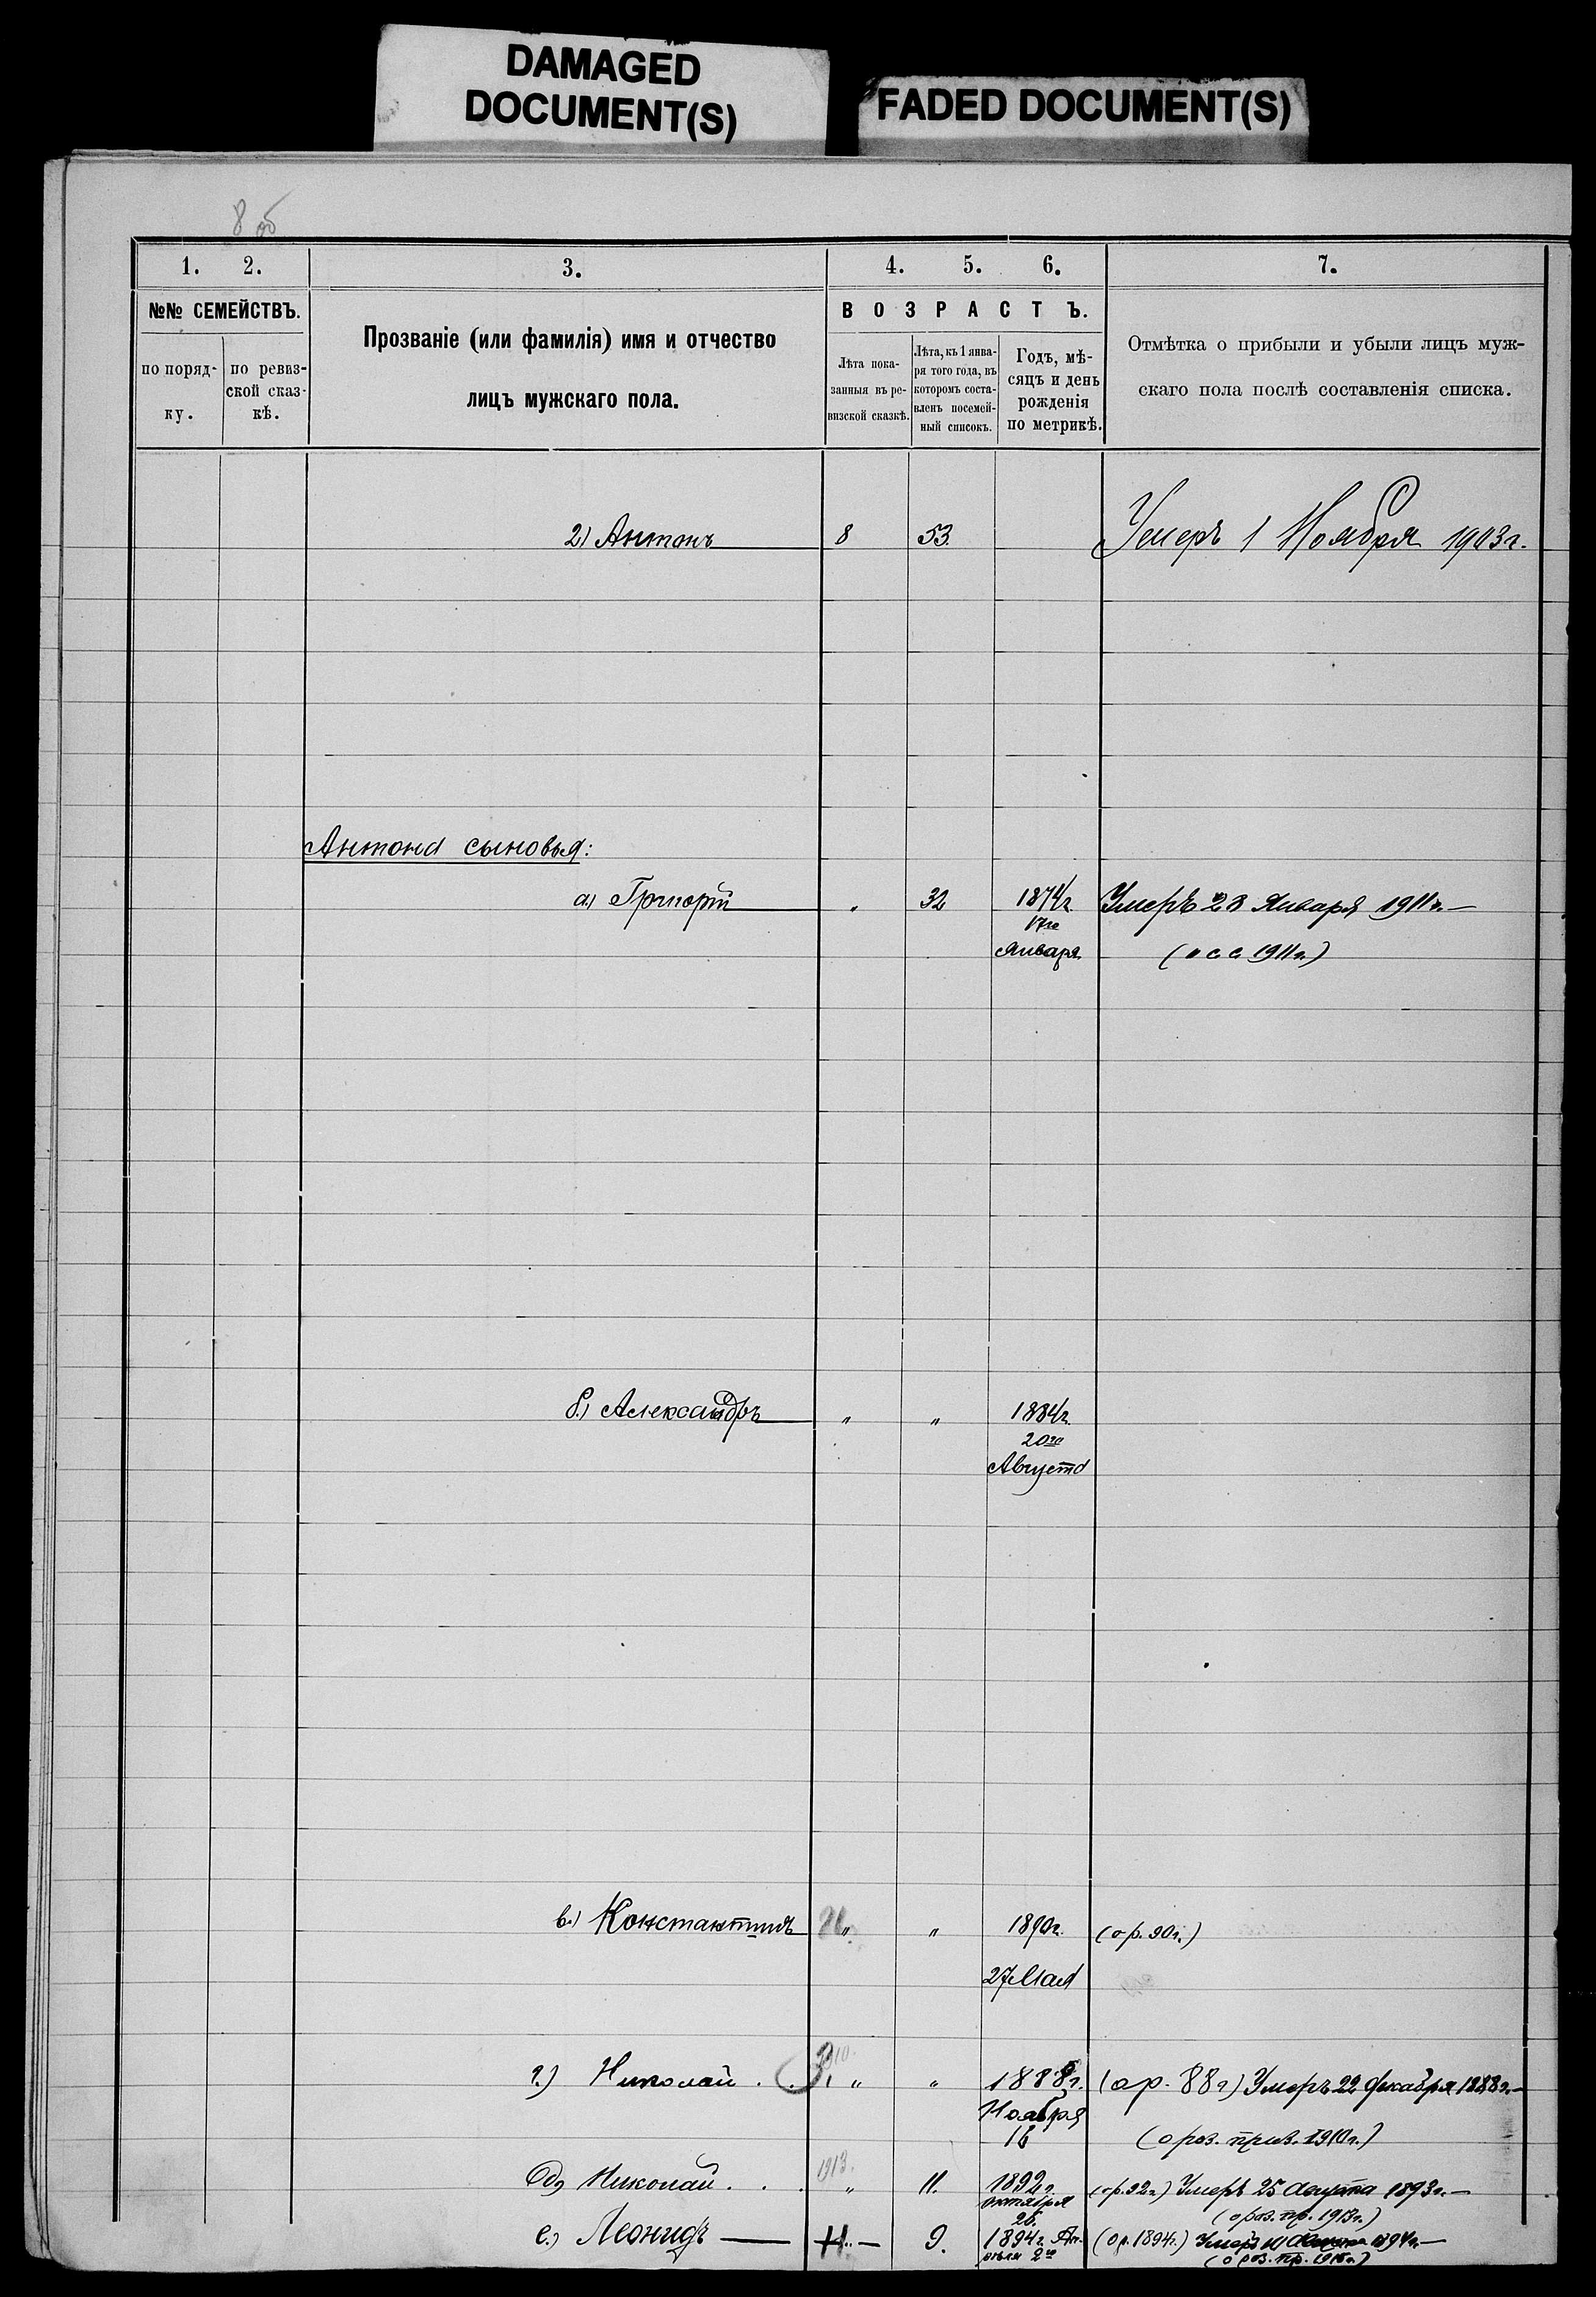 DAMAGED
DOCUMENT(S)
FADED DOCUMENT(S)
8 об
1. 2. 3. 4. 5. 6. 7.
№№ СЕМЕЙСТВЪ.
по поряд-
ку.
по ревиз-
ской сказ-
кѣ.
Прозваніе (или фамилія) имя и отчество
лицъ мужскаго пола.
ВОЗРАСТЪ.
Лѣта пока-
занныя въ ре-
визской сказкѣ.
Лѣта, къ 1 янва-
ря того года, въ
которомъ соста-
вленъ посемей-
ный списокъ.
Годъ, мѣ-
сяцъ и день
рожденія
по метрикѣ.
Отмѣтка о прибыли и убыли лицъ муж-
скаго пола послѣ составленія списка.
2) Антонъ 8 53. Умеръ 1 Ноября 1903 г.
Антона сыновья:
а) Григорій „ 32 1874 г. Умеръ 28 Января 1911 г. —
17го
Января ( с с 1911 г.)
б.) Александръ „ „ 1884 г.
20го
Августа
в.) Константинъ „ „ 1890 г. (о р. 90 г.)
27 Мая
г.) Николай . . „ „ 1888 г. (о р. 88 г) Умеръ 22 декабря 1888 г. —
Ноября
16 (о роз. приз. 1910 г.)
1913.
д) Николай . . . „ 11. 1892 г. (о р. 92 г.) Умеръ 25 Августа 1893 г. —
октября
26. (о роз. пр. 1913 г.)
е.) Леонидъ — 9. 1894 г. Ап- (о р. 1894 г.) Умеръ 1894 г. —
рѣля 2го (о роз. пр. 1915 г.)